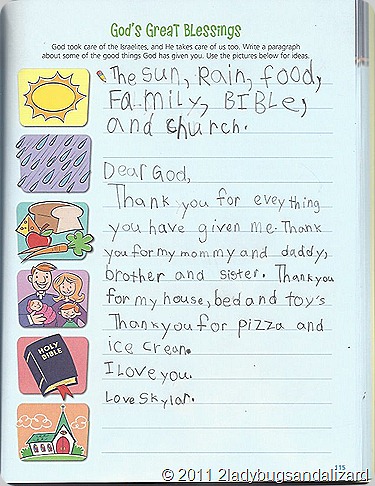 God's Great Blessings
God took care of the Israelites, and He takes care of us too. Write a paragraph
about some of the good things God has given you. Use the pictures below for ideas.
The sun, Rain, food,
Family, BIBLe,
and church.
Dear God,
Thank you for evey thing
you have given me. Thank
you for my mommy and daddy,
brother and sister. Thank you
for my house, bed and toy's
Thank you for pizza and
ice crean.
I Love you.
Love Skylar.
HOLY
BIBLE
115
© 2011 2ladybugsandalizard